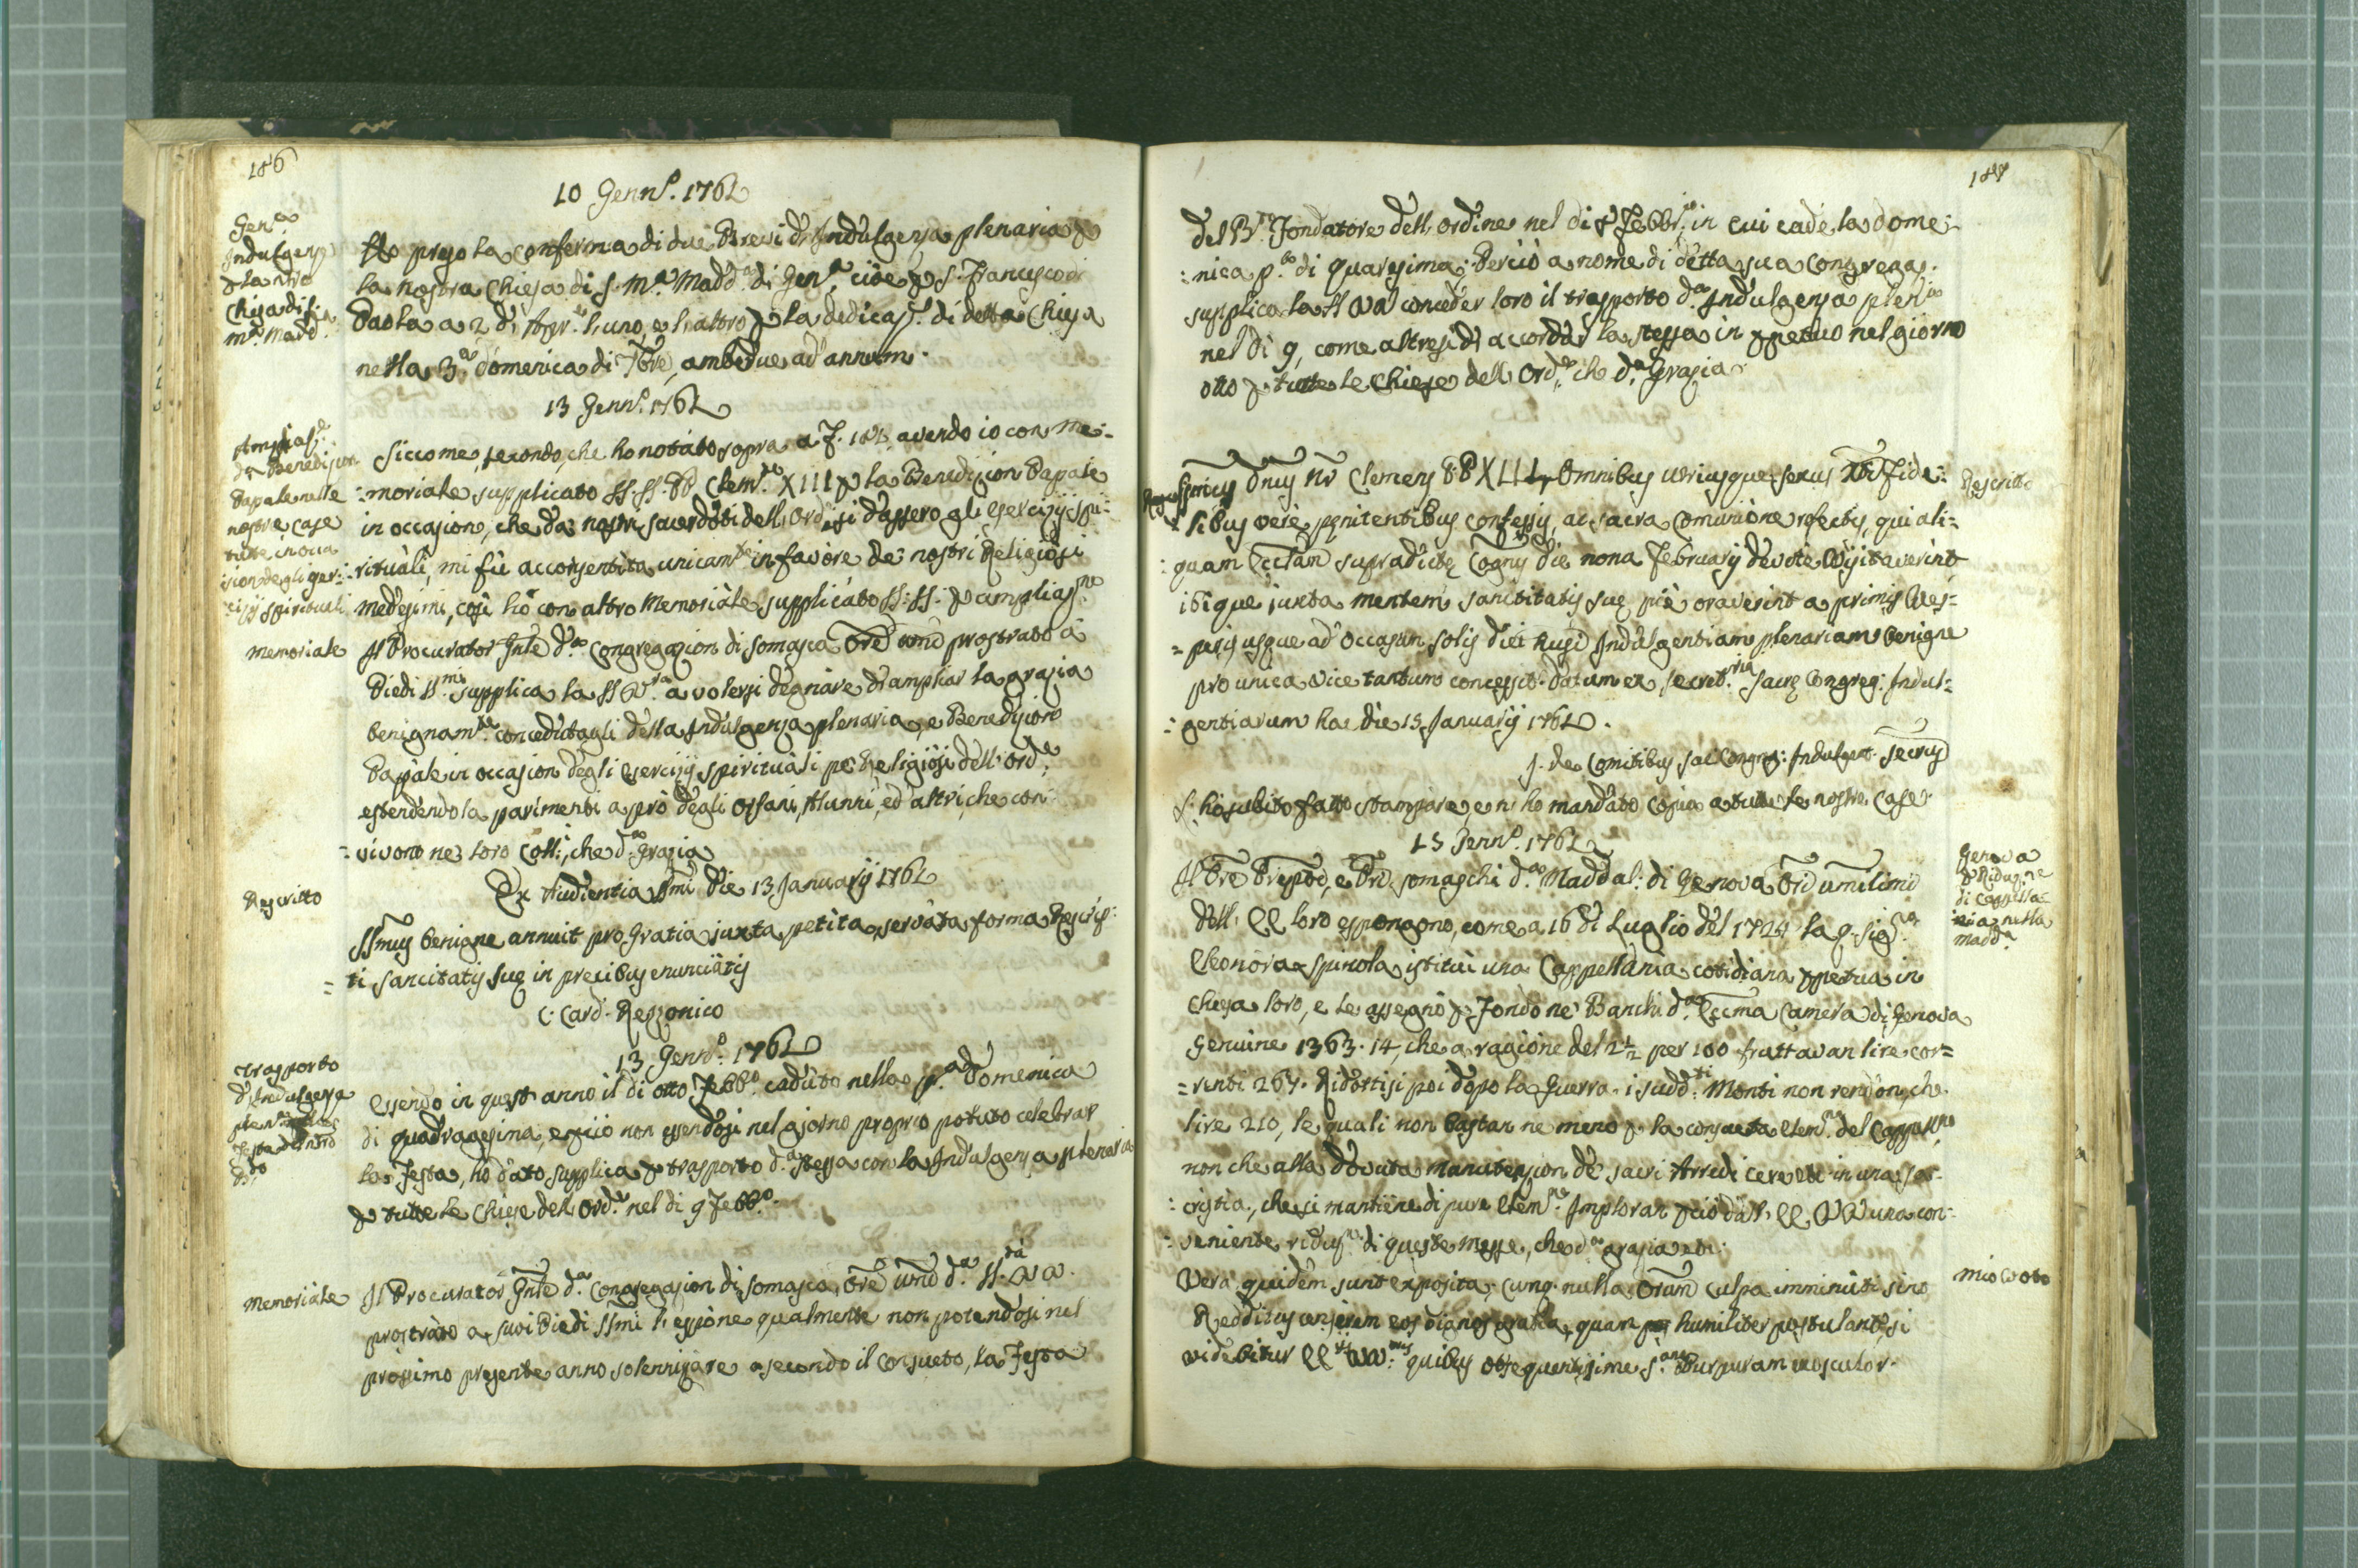 186
10 Genn.º 1762
Gen.ª
Indulgenz
p la nra
Chiesa di S.
M.ª Madd.
Ho preso la conferma di due Brevi d'Indulgenza plenaria p
la nostra Chiesa di S. M.ª Madd.ª di Gen.ª cioè p S. Francesco di
Paola a 2 d'Apr.le l'uno, e l'altro p la dedicaz.e di detta Chiesa
nella 3.ª domenica di 7bre, ambedue ad annum.
13 Genn.º 1762
Ampliaz.e
d.ª Benedizion
Papale nelle
nostre case
tutte in occa
sion degli eser:
cizj spirituali
Siccome, secondo, che ho notato sopra a f. 182 avendo io con me:
:moriale supplicato SS. SS. PP Clem.te XIII p la Benedizion Papale
in occasion, che da' nostri sacerdoti dell'Ord.e si dassero gl'esercizij spi:
:rituali, mi fù acconsentita unicam.te in favore de' nostri Religiosi
medesimi, così hò con altro Memoriale supplicato SS: SS: p ampliaz.ne
memoriale Il Procurator Gnle d.ª Congregazion di Somasca Ore umo prostrato a
Piedi SS.mi supplica la SS V.ra a volersi degnare di ampliar la grazia
benignam.te concedutagli della Indulgenza plenaria, e Benedizion
Papale in occasion degli esercizij spirituali pe' Religiosi dell'Ord.e
estendendola parimenti a prò degli Orfani, Alunni, ed altri, che con
:vivono ne' loro Coll.i, che d.ª grazia
Rescritto Ex Audientia SSmi die 13 Januarij 1762
SSmus benigne annuit pro Gratia juxta petita, servata forma Rescrip:
= ti sanctitatis suę in precibus enunciatis
C. Card. Rezzonico
13 Genn.º 1762
Trasporto
d'Indulgenza
plen.ª
Festa del nro
B. P.
Essendo in quest'anno il dì otto Febb.º caduto nella p.ª Domenica
di quadragesima, e pciò non essendosi nel giorno proprio potuto celebrar
la Festa, ho dato supplica p trasporto d.ª stessa con la Indulgenza plenaria
p tutte le Chiese dell'Ord.e nel dì 9 Febb.º
memoriale Il Procurator Gnle d.ª Congregazion di Somasca, ore umo d.ª SS.tà VV.
prostrato a suoi Piedi SSmi l'espone qualmente non potendosi nel
prossimo presente anno solennizare secondo il consueto, la Festa
187
del B.to Fondatore dell'ordine nel dì 8 Febbr.º in cui cade la dome:
:nica p.ª di Quaresima: Perciò a nome di detta sua Congregaz.
supplica la SS VV conceder loro il trasporto d.ª Indulgenza plen.ª
nel dì 9, come altresì di accordar la stessa in ppetuo nel giorno
otto p tutte le Chiese dell'Ord.e che d.ª Grazia.
SSmus Dnus Nr Clemens PP XIII Omnibus utriusque sexus Xti fide: Rescritto
:libus vere pęnitentibus confessis, ac sacra Comunione refectis, qui ali=
:quam Ecclam supradictę Cognis die nona Februarij devote visitaverint
ibique juxta mentem sanctitatis suę piè oraverint a primis Ves=
=peris usque ad occasum solis diei husmi Indulgentiam plenariam benigne
pro unica vice tantum concessit. Datum ex Secret.ria Sacrę Congreg: Indul=
:gentiarum hac die 13 Januarij 1762.
J. de Comitibus Sac Congreg: Indulgent. Secrius
L'ho subito fatto stampare, e ni ho mandato copia a tutte le nostre case.
15 Genn.º 1762
Genova
p Riduz.ne
di Cappella=
nia nella
Madd.ª
Il Pre Prepoo, e Pri Somaschi d.ª Maddal: di Genova Ori umilimi
dell'EE loro espongono, come a 16 di Luglio del 1724 la q. Sig.ra
Eleonora Spinola istituì una Cappellania cotidiana ppetua in
chiesa loro, e le assegnò p Fondo ne' Banchi d.ª Eccma Camera di Genova
Genuine 1363.14, che a ragione del 2½ per 100 fruttavan lire cor=
=renti 267. Ridottisi poi dopo la Guerra i sudd.ti Monti non rendon, che
lire 210, le quali non bastan ne meno p la consueta elem.na del Cappell.no
non che alla dovuta manutension de' sacri Arredi cere etc in una sa=
:cristia, che si mantiene di pure elem.ne Imploran pciò dall'EE VV una con=
:veniente riduz.ne di queste messe, che d.ª grazia etc:
Vera quidem sunt exposita, cumq. nulla Orum culpa imminuti sint mio Voto
Redditus censerem eos dignos gratia, quam humiliter postulant, si
videbitur EE.tiis VV.ris quibus obsequentissime S.am Purpuram exosculor.